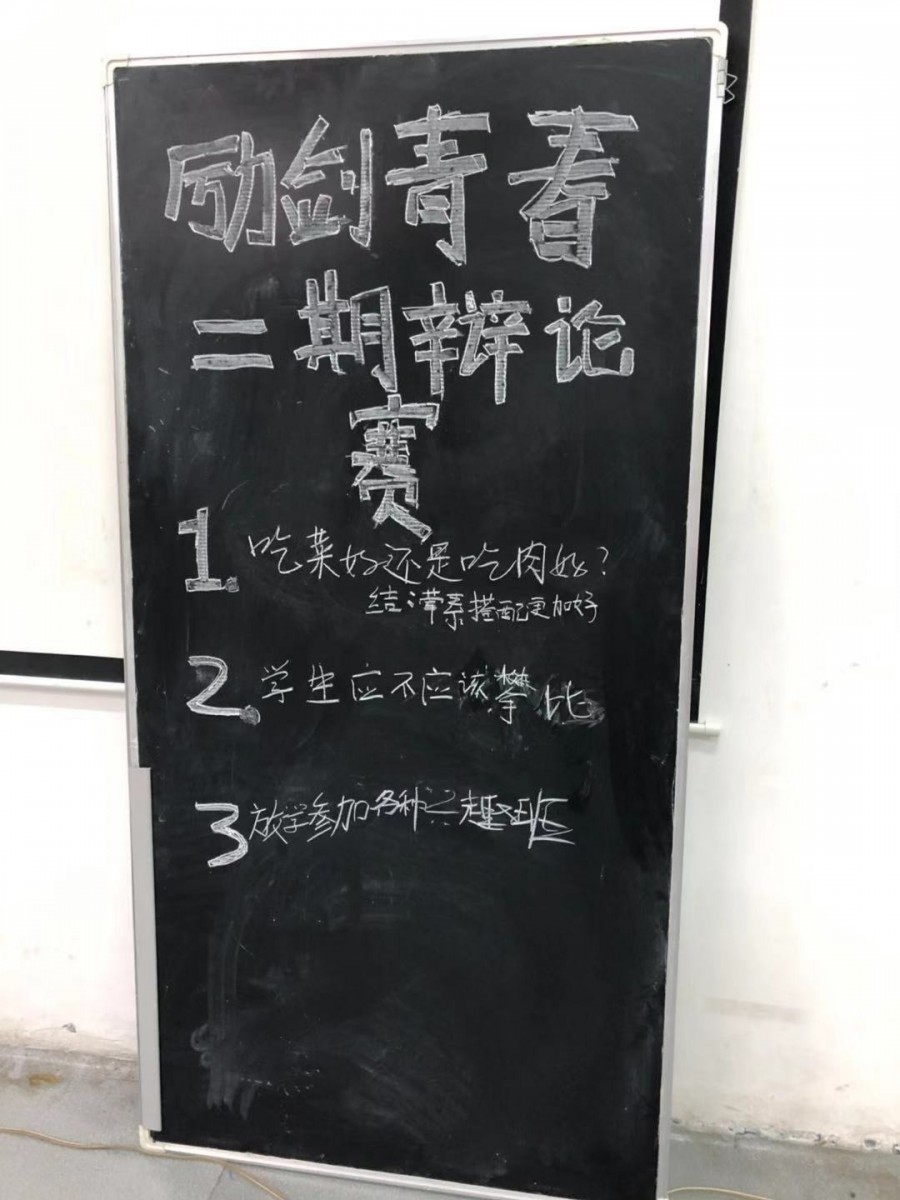 励剑青春
二期辩论
赛
1. 吃菜好还是吃肉好?
结 搭配更加好
2. 学生应不应该攀比
3 放学参加各种兴趣班